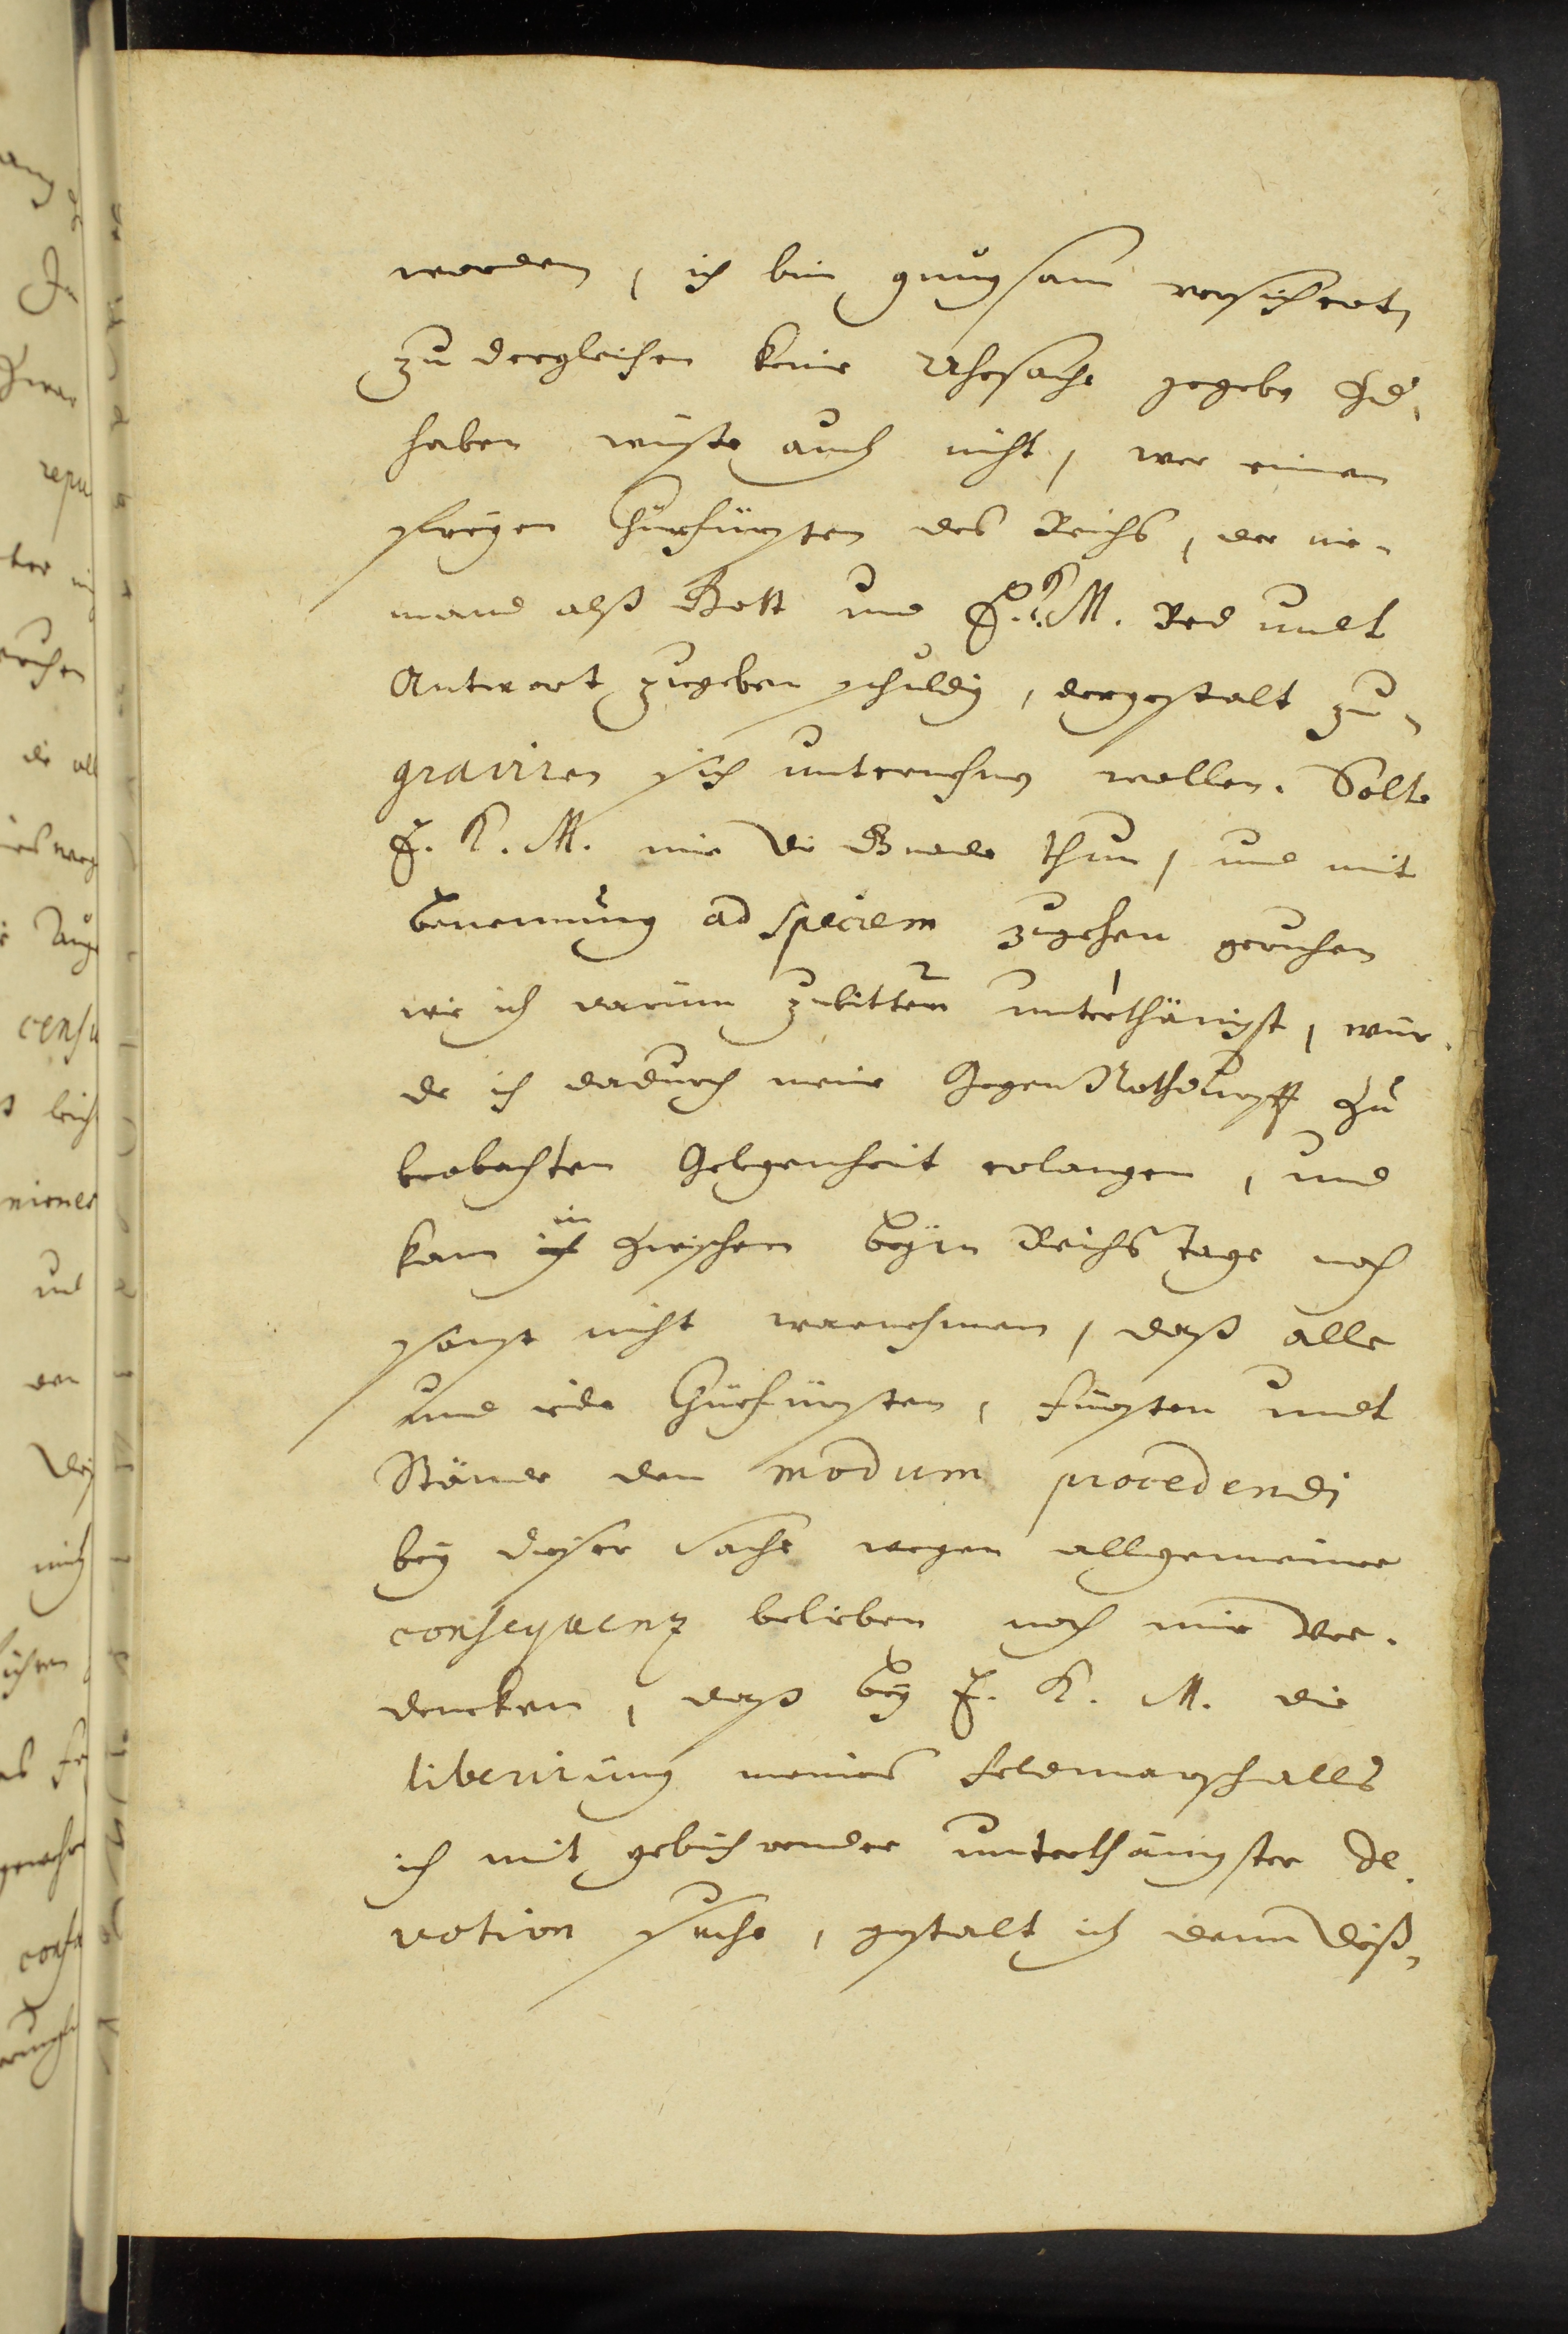 worden, ich bin gnugsam versichert,
zu dergleichen keine Uhrsache gegeben Zu¬
haben wüste auch nicht, wer einen
freyen Churfürsten des Reichs, der nie¬
mand alß Gott und E. K. M. Red undt
Antwort zugeben schuldig, dergestalt zu¬
graviren sich unternehmen wollen. Solte
E. K. M. mir die Gnade thun, und mit
benennung ad speciem zugehen geruhen
wie ich darum zubitten 2 unterthänigst 1, wür¬
de ich dadurch meine Gegen Nothdurfft zu
beobachten Gelegenheit erlangen, und
kan ich in zwischen beym Reichs Tage noch
sonst nicht warnehmen, daß alle
und iede Churfürsten, Fürsten undt
Stände den modum procedendi
bey dieser Sache wegen allgemeiner
consequenz belieben noch mir ver¬
dencken, daß bey E. K. M. die
liberirung meines Feldmarschalls
ich mit gebührender unterthänigster de¬
votion suche, gestalt ich denn dieß¬